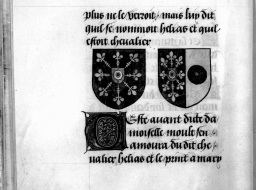 plus ne le verroit / mais luy dit
quil se nommoit helias et quil
estoit cheualier
Ceste auant dicte da
moiselle moult sen
amoura du dit che
ualier helias et le print a mary